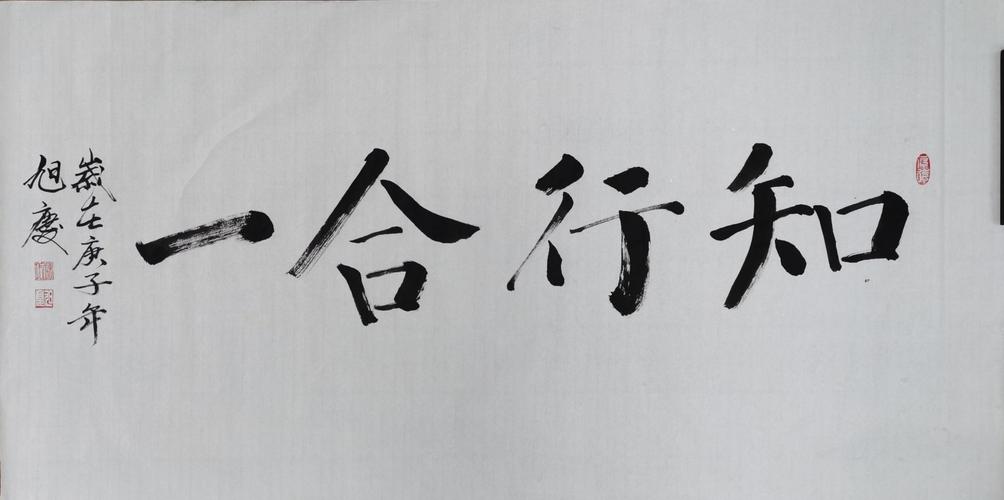 知行合一
歲在庚子年
旭慶